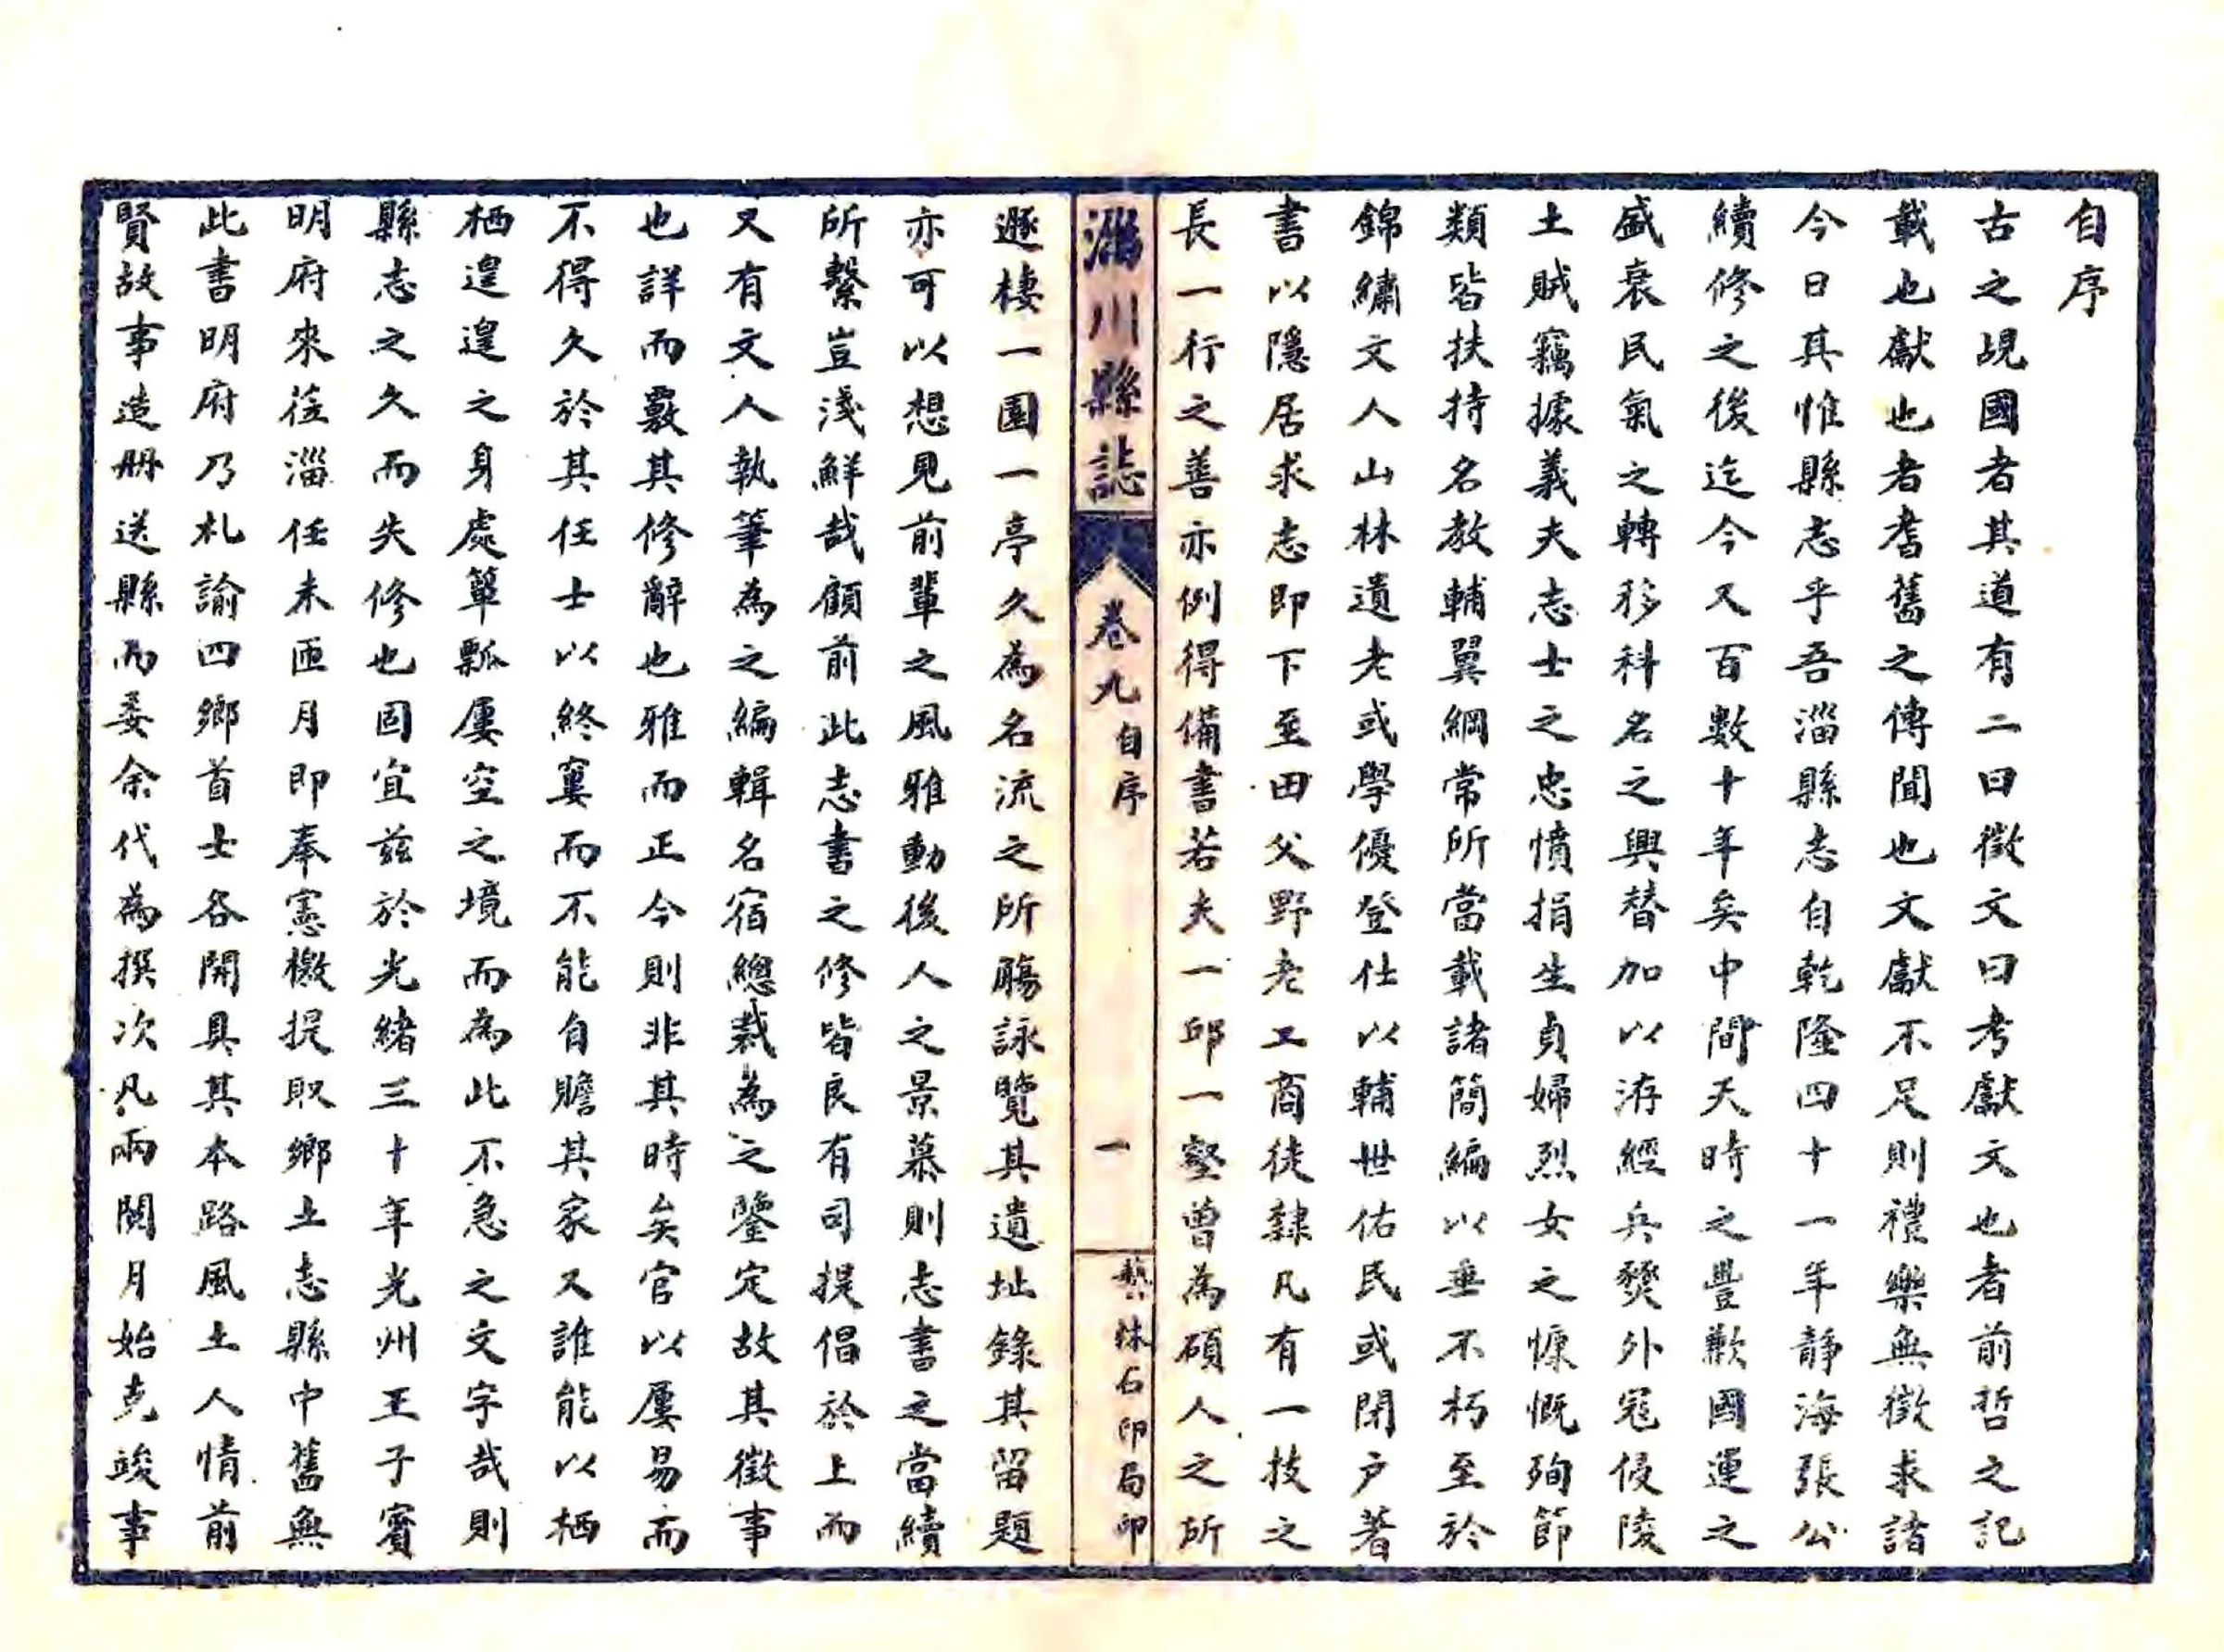 自序
古之覘國者其道有二曰徵文曰考獻文也者前哲之記
載也獻也者耆舊之傳聞也文獻不足則禮樂無徵求諸
今日其惟縣志乎吾淄縣志自乾隆四十一年靜海張公
續修之後迄今又百數十年矣中間天時之豐歉國運之
盛衰民氣之轉移科名之興替加以洊經兵燹外寇侵陵
土賊竊據義夫志士之忠憤捐生貞婦烈女之慷慨殉節
類皆扶持名教輔翼綱常所當載諸簡編以垂不朽至於
錦繡文人山林遺老或學優登仕以輔世佑民或閉户著
書以隱居求志即下至田父野老工商徒隸凡有一技之
長一行之善亦例得備書若夫一邱一壑曾為碩人之所
淄川縣誌
卷九
自序
一
藝林石印局印
遯棲一園一亭久為名流之所觴詠覽其遺址錄其留題
亦可以想見前輩之風雅動後人之景慕則志書之當續
所繫豈淺鮮哉顧前此志書之修皆良有司提倡於上而
又有文人執筆為之編輯名宿總裁為之鑒定故其徵事
也詳而覈其修辭也雅而正今則非其時矣官以屢易而
不得久於其任士以終窶而不能自贍其家又誰能以栖
栖遑遑之身處簞瓢屢空之境而為此不急之文字哉則
縣志之久而失修也固宜兹於光緒三十年光州王子賓
明府來莅淄任未匝月即奉憲檄提取鄉土志縣中舊無
此書明府乃札諭四鄉首士各開具其本路風土人情前
賢故事造册送縣而委余代為撰次凡兩閲月始克竣事